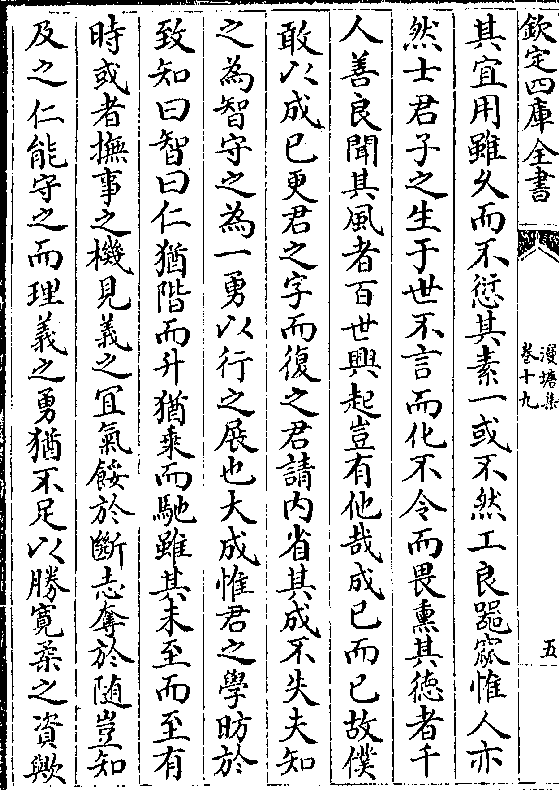 欽定四庫全書
漫塘集
卷十九
五
其宜用雖久而不愆其素一或不然工良器窳惟人亦
然士君子之生于世不言而化不令而畏熏其德者千
人善良聞其風者百世興起豈有他哉成已而已故僕
敢以成已更君之字而復之君請内省其成不失夫知
之為智守之為一勇以行之展也大成惟君之學昉於
致知曰智曰仁猶階而升猶乘而馳雖其未至而至有
時或者撫事之機見義之宜氣餒於斷志奪於随豈知
及之仁能守之而理義之勇猶不足以勝寛柔之資歟